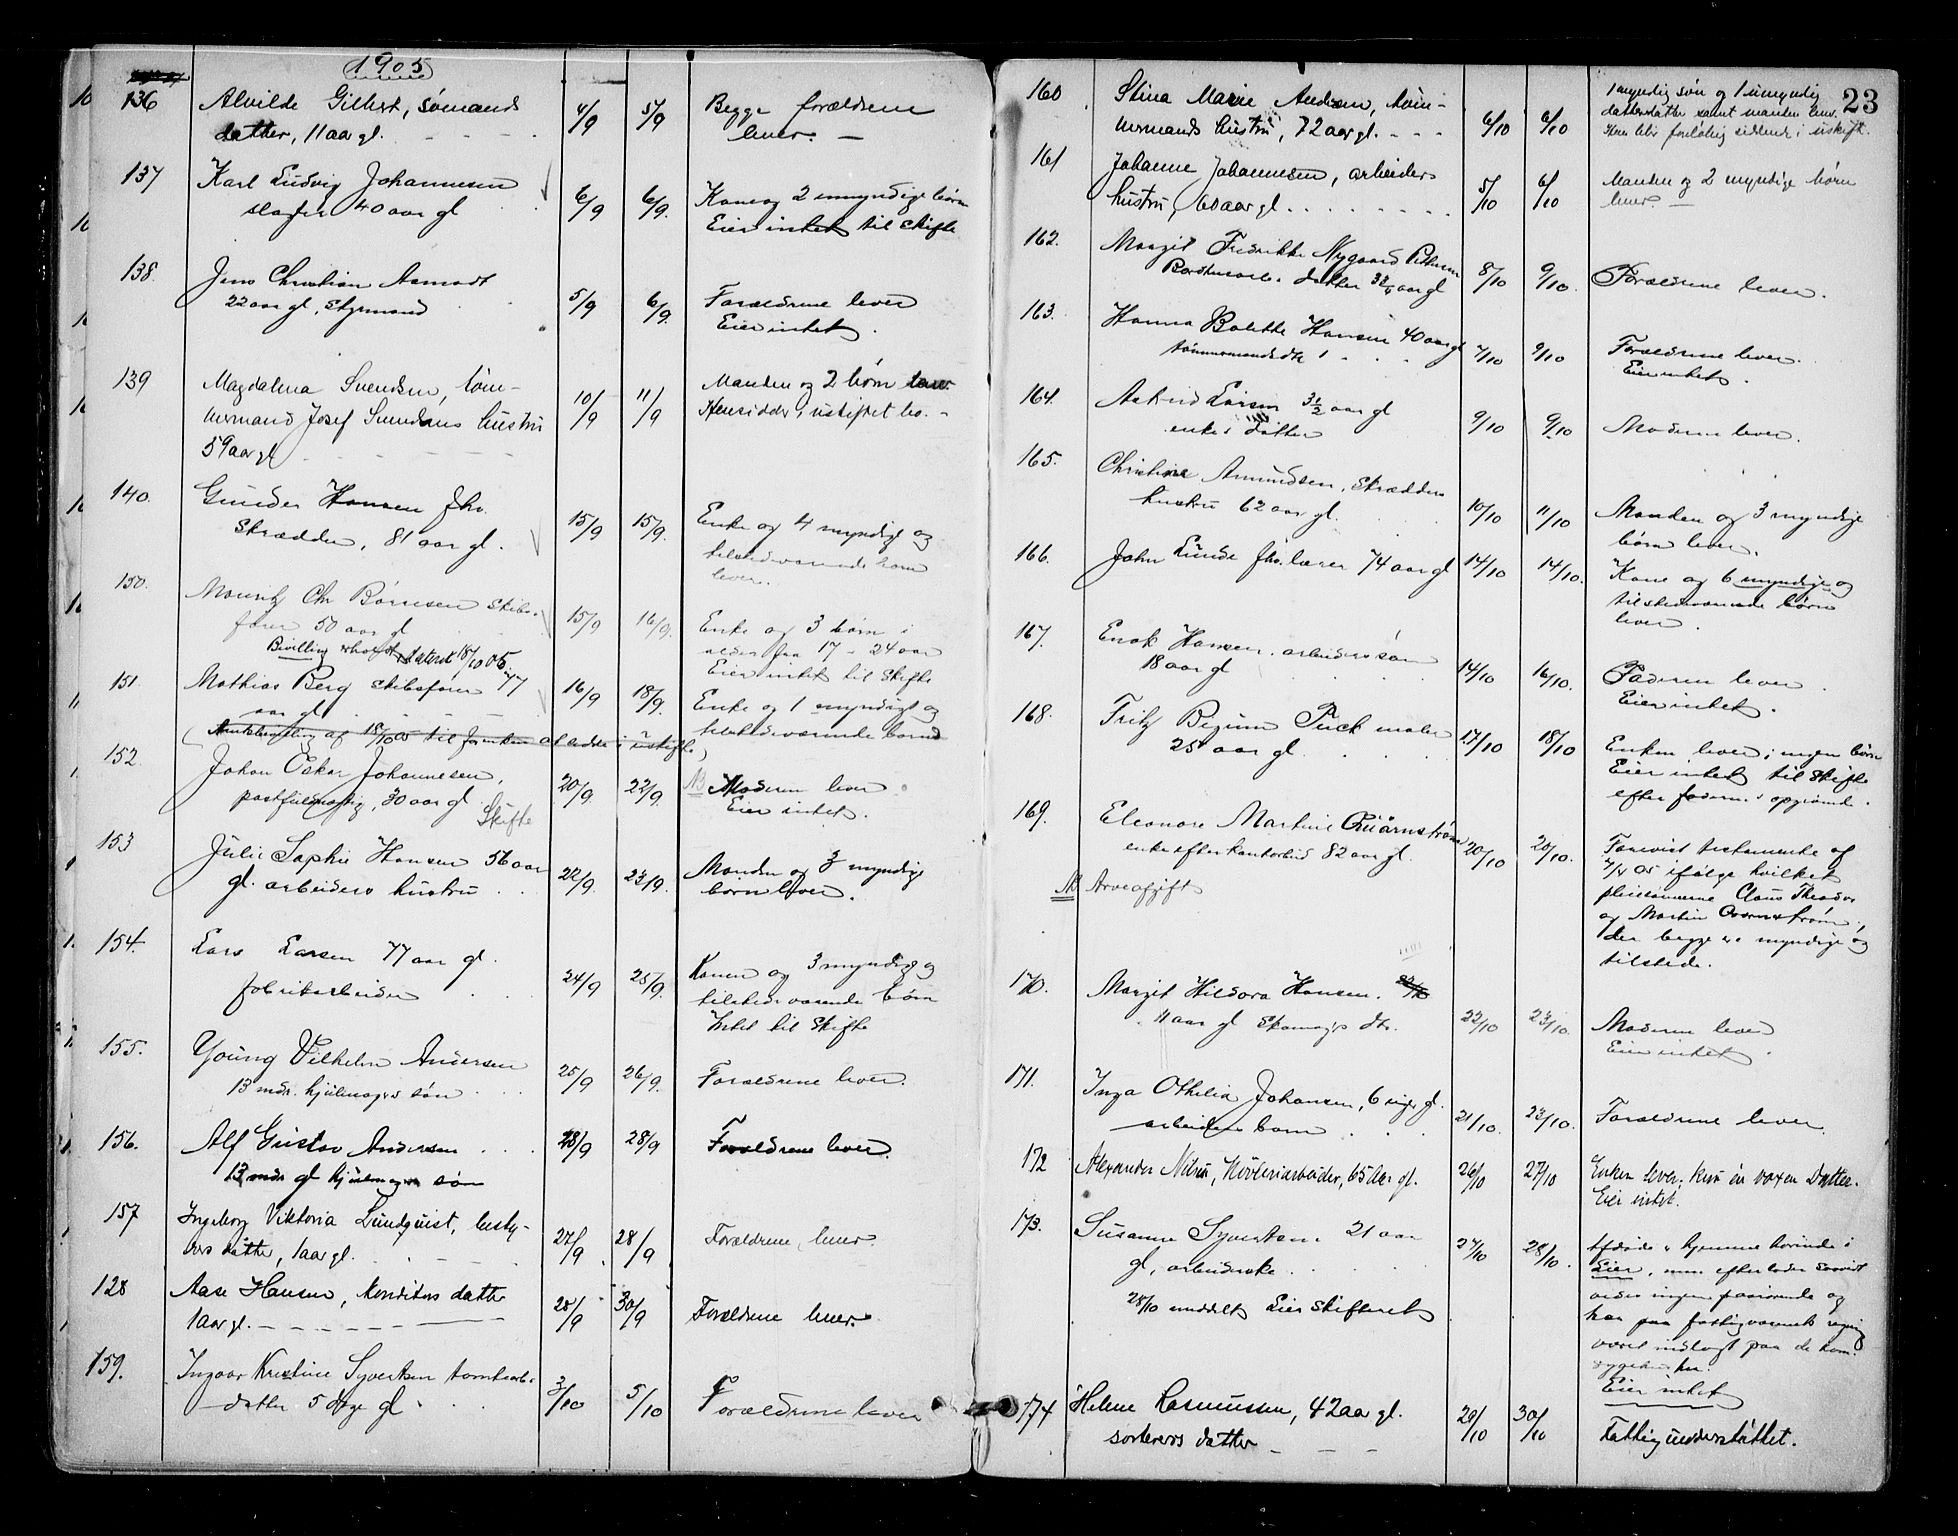 1905
136 Alvilde Gilbert, sømands 4/9 5/9 Begge forældrene
datter, 11 aar gl. lever. —
137 Karl Ludvig Johannesen 6/9 6/9 Kone og 2 umyndige børn
slagter 40 aar gl Eier intet til skifte
138. Jens Christian Aamodt 5/9 6/9. Forældrene lever
22 aar gl, Styrmand Eier intet.
139 Magdalena Svendsen, tøm- 10/9 11/9 Manden og 2 børn lever
mermand Josef Svendsens hustru Hensidder i uskiftet bo. -
59 aar gl
140. Gunder Hansen fhv. 15/9 15/9. Enke og 4 myndige og
Skrædder, 81 aar gl. tilstedeværende børn
lever.
150. Mouritz Chr Børresen Skibs- 15/9 16/9. Enke og 3 børn i
fører 50 aar gl alder fra 17 - 24 aar
Bevilling dateret 18/10 05. Eier intet til Skifte
151. Mathias Berg Skibsfører 77 16/9 18/9. Enke og 1 myndigt og
aar gl tilstedeværende barn
152. Johan Oskar Johannesen, 20/9 22/9. NB Moderen lever
postfuldmægtig, 30 aar gl Eier intet.
Skifte
153 Julie Sophie Hansen 56 aar 22/9 23/9. Manden og 3 myndige
gl. arbeiders hustru børn lever.
154. Lars Larsen 77 aar gl. 24/9 25/9. Konen og 3 myndige og
fabrikarbeider tilstedeværende børn
Intet til Skifte
155. Young Vilhelm Andersen 25/9 26/9. Forældrene lever.
13 mdr. hjulmagers søn
156. Alf Gustav Andersen 28/9 28/9 Forældrene lever.
13 mdr gl hjulmagers søn
157 Ingeborg Viktoria Lundquist, besty- 27/9 28/9 Forældrene lever.
rers datter, 1 aar gl.
128 Aase Hansen, konditors datter 28/9 30/9 Forældrene lever.
1 aar gl.
159. Ingvar Kristine Syvertsen tomtearb. 3/10 5/10 Forældrene lever
datter 5 dage gl
23
160 Stina Marie Andersen, tøm- 6/10 6/10 1 myndig søn og 1 umyndig
mermands hustru, 72 aar gl. datterdatter samt manden lever.
Han blir foreløbig siddende i uskift.
161 Johanne Johannesen, arbeiders 5/10 6/10 Manden og 2 myndige børn
hustru, 60 aar gl. lever. —
162. Margit Fredrikke Nygaard Pettersen 8/10 9/10. Forældrene lever.
datter 3 3/4 aar gl
163. Hanna Bolette Hansen 40 aar gl 7/10 9/10 Forældrene lever.
tømmermands dtr Eier intet.
164. Astrid Larsen 3 1/2 aar gl 9/10 9/10 Moderen lever.
enkes datter
165. Christine Amundsen, Skrædders 10/10 11/10 Manden og 3 myndige
hustru 62 aar gl. børn lever.
166. John Lunde fhv. lærer 74 aar gl 14/10 14/10. Kone og 6 myndige og
tilstedeværende børn
lever.
167. Enok Hansen. arbeiders søn 14/10 16/10. Faderen lever.
18 aar gl Eier intet.
168. Fritz Bigum Puck maler 17/10 18/10 Enken lever, ingen børn
25 aar gl. Eier intet til Skifte
169. Eleonore Martine Quarnstrøm 20/10 20/10. Forevist testamente af
enke efter kontorbud 82 aar gl. ifølge hvilket
NB Arveafgift pleiesønnerne Claus Theodor
og Martin Quarnstrøm,
der begge er myndige og
tilstede.
170. Margit Hildora Hansen. 22/10 23/10. Moderen lever
11 aar gl Skomagers dtr. Eier intet.
171. Inga Othelia Johansen, 6 uger gl. 21/10. 23/10. Forældrene lever.
arbeiders barn
172 Alexander Nilsen, Høvleriarbeider, 65 Aar gl. 26/10 27/10 Enken lever, kun én voxen Datter.
Eier intet.
173. Susanne Syvertsen. 21 aar 27/10 28/10. Afdøde er hjemmehørende i
gl, arbeiderske Eier, men efterlader saavidt
28/10 meddelt Eier Skifteret vides ingen paarørende og
har paa fattigvæsenets regning
været indlagt paa de kom.
sygehus her.
Eier intet
174 Helene Rasmussen, 42 aar gl. 29/10 30/10 Fattigunderstøttet.
sorterers datter